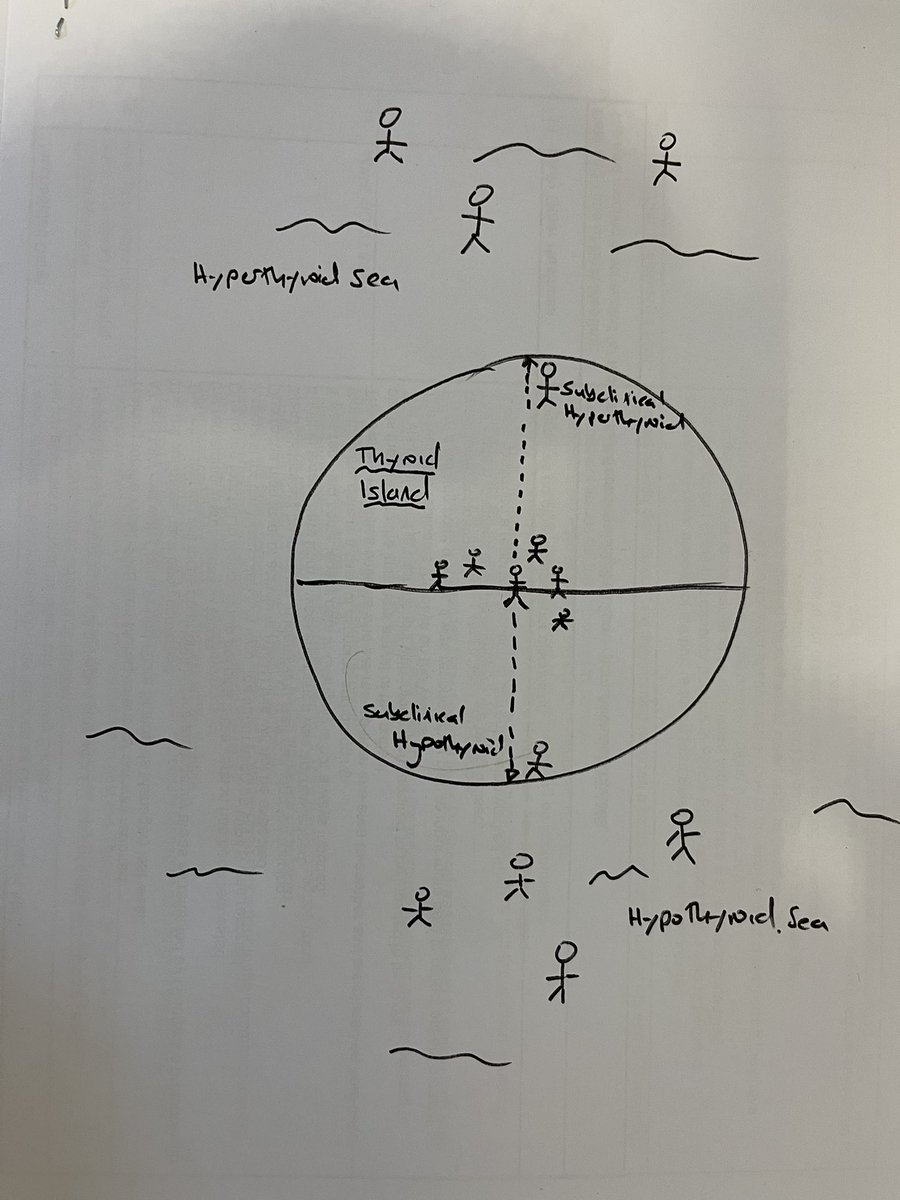 Hyperthyroid Sea
Subclinical
Hyperthyroid
Thyroid
Island
Subclinical
Hypothyroid
Hypothyroid Sea